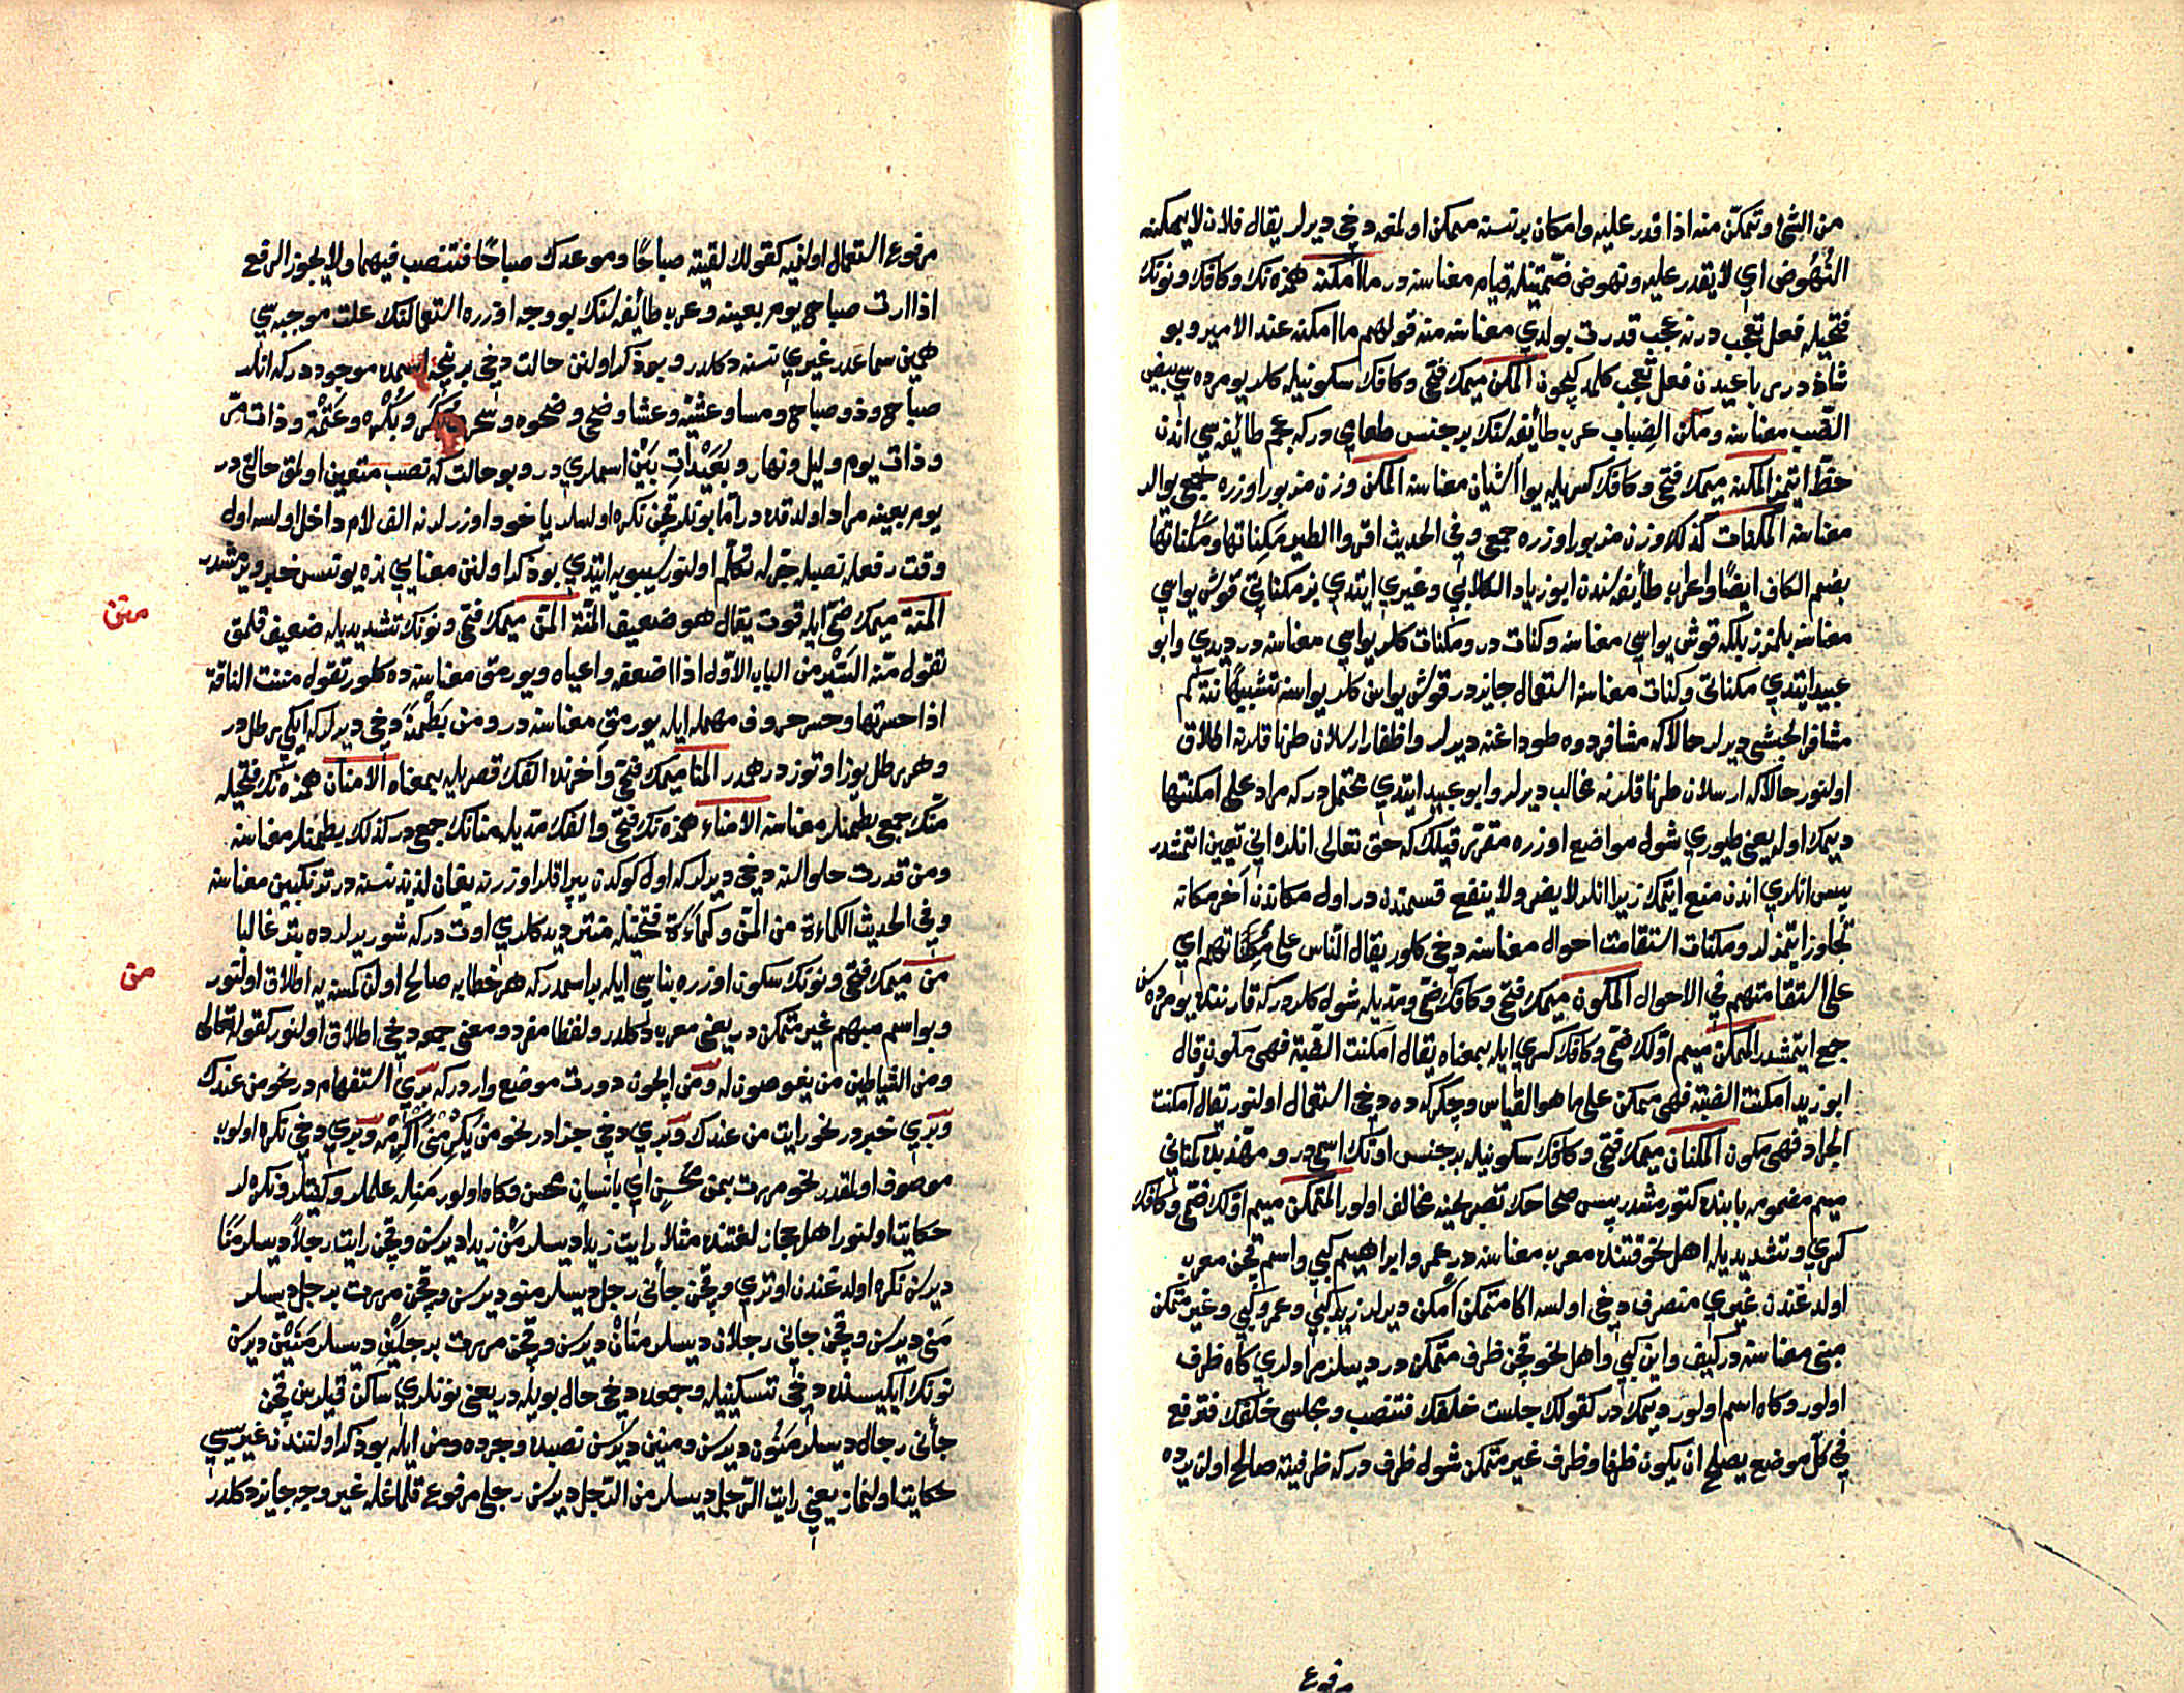 من الشئ وتمكّن منه اذا قدر عليه وامكان بر نسنه ممكن اولمغه دخي ديرلر يقال فلان لا يمكنه
النُهُوض اي لا يقدر عليه ونهوض ضمّتينله قيام معناسنه در ما امكنه همزه نك وكافك ونونك
فتحيله فعل تعجب در نه عجب قدرت بولدي معناسنه منه قولهم ما امكنه عند الامير وبو
شاذ در رباعيدن فعل تعجب كلمديكيچون المكن ميمك فتحي وكافك سكونيله كلر يومرده سي بيض
الضب معناسنه ومكن الضباب عرب طائفه لنك بر جنس طعامي در كه عجم طائفه سي اندن
حظّ ايتمز المكنة ميمك فتحي وكافك كسريله يوا اشيان معناسنه المكن وزن مزبور اوزره جمعي يوالر
معناسنه المكنات كذلك وزن مزبور اوزره جمعي وفي الحديث اقروا الطير مَكِناتها ومَكُناتها
بضم الكاف ايضًا واعراب طائفه لندن ابو زياد الكلابي وغيري ايتدي بز مكناتي قوش يواسي
معناسنه بلمزز بلكه قوش يواسي معناسنه وكنات در ومكنات كلر يواسي معناسنه در ديدي وابو
عبيد ايتدي مكناتي وكنات معناسنه استعمال جايز در قوش يواسن كلر يواسنه تشبيهًا نته كم
مشافر الحبشي ديرلر حالا كه مشافر دوه طوداغنه ديرلر واظفار ارسلان طرناقلرنه اطلاق
اولنور حالا كه ارسلان طرناقلرنه مخالب ديرلر وابو عبيد ايتدي محتمل در كه مراد على امكنتها
ديمك اوله يعني طيوري شول مواضع اوزره مقرّر قيلك كه حق تعالى انلره اني تعيين اتمشدر
پس انلري اندن منع ايتمك زيرا انلر لا يضر ولا ينفع قسمندن در اول مكاندن آخر مكانه
تجاوز ايتمزلر ومكنات استقامت احوال معناسنه دخي كلور يقال النّاس على مكناتهم اي
على استقامتهم في الاحوال المكون ميمك فتحي وكافك ضمّي ومدّيله شول كلردر كه قارننده يومرده سن
جمع ايتمشدر الممكن ميم اوّلك ضمّي وكافك كسري ايله بمعناه يقال امكنت الضبّة فهي مكون وقال
ابو زيد امكنت الضبّة فهي ممكن على ما هو القياس وچكركه ده دخي استعمال اولنور تقال امكنت
الجراد فهي مكون المكنان ميمك فتحي وكافك سكونيله بر جنس اوتك اسمي در ومهذبده مكناني
ميم مضمومه بابنده كتورمشدر پس صحاحك تصريحنه مخالف اولور المتمكن ميم اوّلك ضمّي وكافك
كسري وتشديديله اهل نحو قتنده معرب معناسنه در عمر وابراهيم كبي واسم قچن معرب
اولدغندن غيري منصرف دخي اولسه اكا متمكن امكن ديرلر زيد كبي وعمرو كبي وغير متمكن
مبني معناسنه در كيف واين كبي واهل نحو قچن ظرف متمكن در ديسلر مرادلري كاه ظرف
اولور وكاه اسم اولور ديمك در كقولك جلست خلفك فتنصب ومجلسي خلفك فترفع
في كل موضع يصلح ان يكون ظرفا وظرف غير متمكن شول ظرف در كه ظرفيته صالح اولن يرده
مرفوع
مرفوع استعمال اولنميه كقولك لقيته صباحًا وموعدك صباحًا فتنصب فيهما ولا يجوز الرفع
اذا اردت صباح يوم بعينه وعرب طائفه لنك بو وجه اوزره استعمالنك علت موجبه سي
همين سماعدر غيري نسنه دكلدر وبو ذكر اولنن حالت دخي بر نيچه اسمده موجود در كه انلر
صباح وذو صباح ومسا وعشيّة وعشا وضحى وضحوه وسحر وبُكَر وبُكْره وعَتَمْة وذات مرّ
وذات يوم وليل ونهار وبُعَيْداتِ بَيْن اسملري در وبو حالت كه نصب متعين اولمق حالتي در
يوم بعينه مراد اولدقده در امّا بونلر قچن نكره اولسلر ياخود اوزرلرنه الف لام داخل اولسه اول
وقت رفعله نصبيله جرّله تكلّم اولنور سيبويه ايتدي بو ذكر اولنن معنايي بزه يونس خبر ويرمشدر
متن
المنة ميمك ضمّي ايله قوت يقال هو ضعيف المُنّة المنّ ميمك فتحي ونونك تشديديله ضعيف قلمق
تقول منّه السَّيْر من الباب الاوّل اذا اضعفه واعياه ويورمق معناسنه ده كلور تقول مننت الناقة
اذا حسرتها وحسر حروف مهمله ايله يورمق معناسنه در ومن بَطْمنة دخي ديرلر كه ايكي رطل در
وهر رطل يوز اوتوز درهمدر المنا ميمك فتحي وآخرنده الفك قصريله بمعناه الامنان همزه نك فتحيله
منّك جمعي بطمنلر معناسنه الامناء همزه نك فتحي والفك مدّيله منانك جمعي در كذلك بطمنلر معناسنه
ومن قدرت حلواسنه دخي ديرلر كه اول كوكدن يپراقلر اوزرنه يغان لذيذ نسنه در ترنكبين معناسنه
وفي الحديث الكماءة من المنّ وكماءَة فتحتيله منتر ديدكلري اوت در كه شوره يرلرده بتر غالبا
من
من ميمك فتحي ونونك سكون اوزره بناسي ايله بر اسمدر كه هر خطابه صالح اولن كمسنه يه اطلاق اولنور
وبو اسم مبهم غير متمكن در يعني معرب دكلدر ولفظا مفرد ومعنى جمعه دخي اطلاق اولنور كقوله تعالى
ومن الشياطين من يغوصون له ومَن ايچون دورت موضع وارد كه بري استفهام در نحو من عندك
وبري خبر در نحو رايت من عندك وبري دخي جزا در نحو من يُكْرِمْني اُكْرِمْه وبري دخي نكره اولوب
موصوف اولمقدر نحو مررت بمن محسنٍ اي بانسانٍ محسن وكاه اولور مَنله علملر وكنيتلر ونكره لر
حكايت اولنور اهل حجاز لغتنده مثلا رايت زيدا ديسلر مَنْ زيدا ديرسن وقچن رايت رجلاً ديسلر مَنا
ديرسن نكره اولدغندن اوتري وقچن جاءني رجل ديسلر منو ديرسن وقچن مررت برجل ديسلر
مَني ديرسن وقچن جاءني رجلان ديسلر منانْ ديرسن وقچن مررت برجلَيْنِ ديسلر مَنَيْنْ ديرسن
نونك ايكيسنده دخي تسكينيله وجمعده دخي حال بويله در يعني نونلري ساكن قيلرسن قچن
جاءني رجال ديسلر مَنُونْ ديرسن ومنين ديرسن نصبده وجرده ومن ايله بو ذكر اولنندن غيريسي
حكايت اولنماز يعني رايت الرّجل ديسلر من الرّجل ديرسن رجلي مرفوع قلماغله غير وجه جايز دكلدر